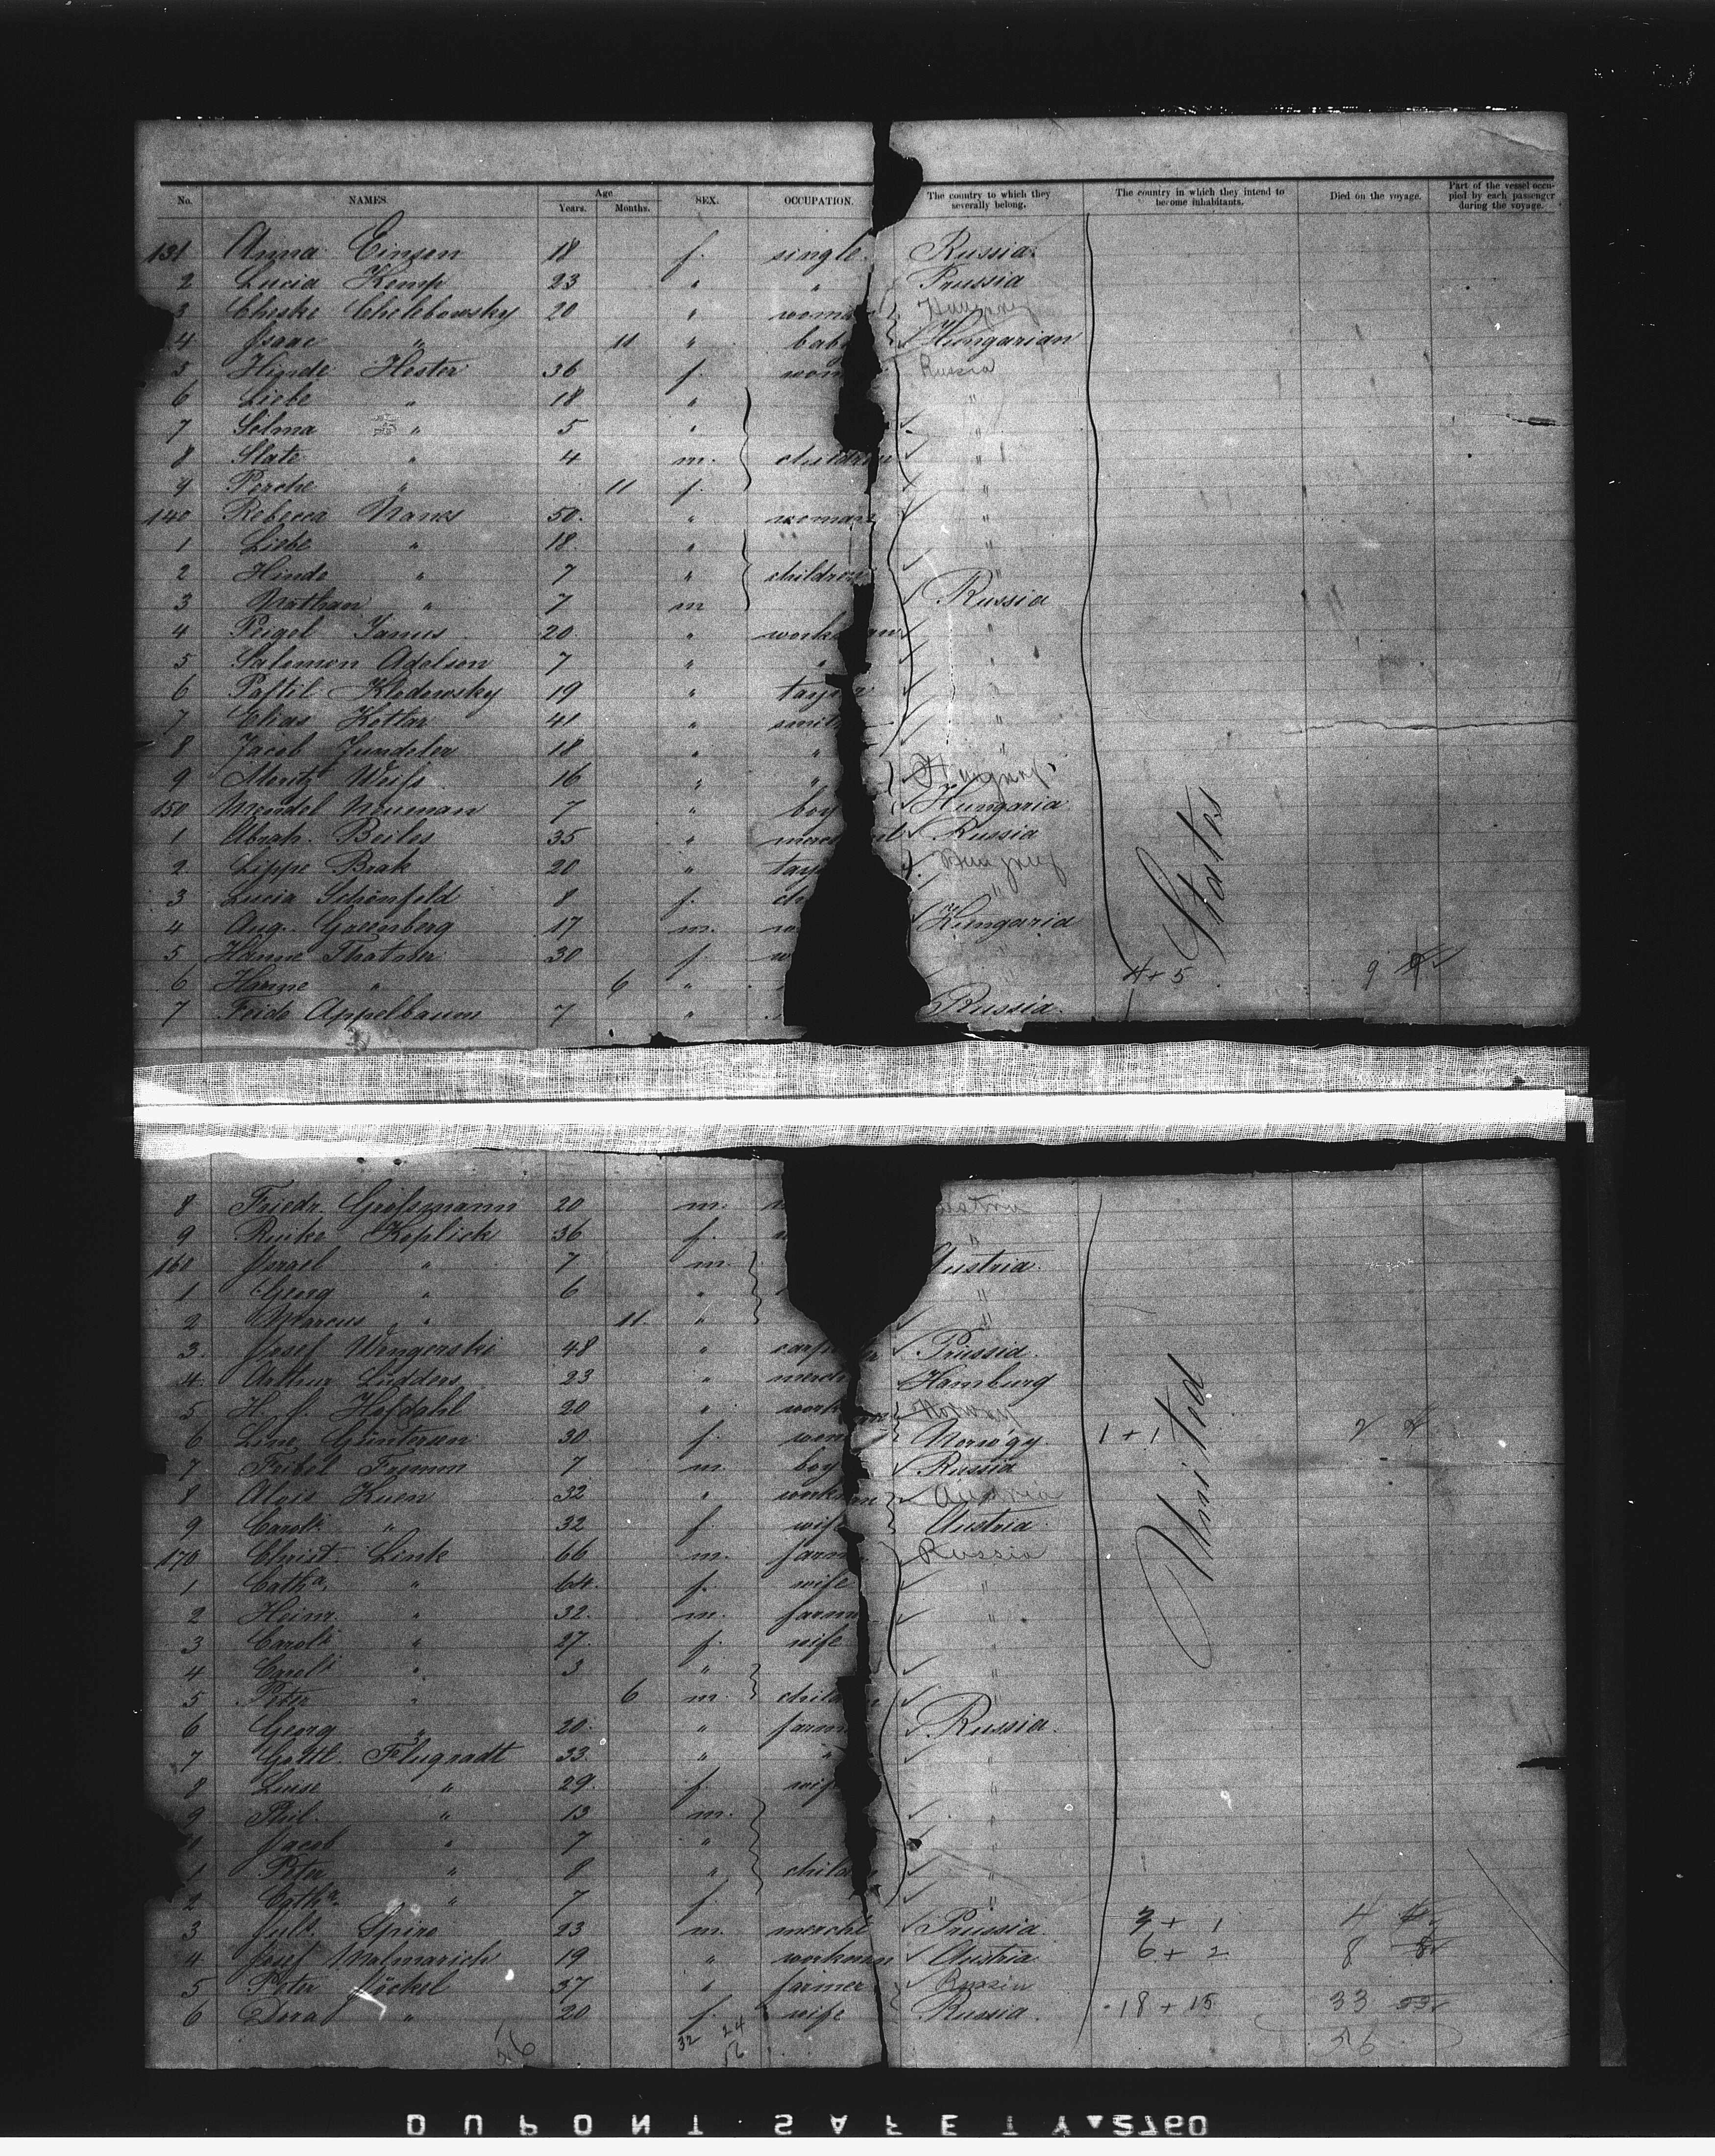 No. NAMES. Age Years. Months. SEX. OCCUPATION. The country to which they severally belong. The country in which they intend to become inhabitants. Died on the voyage. Part of the vessel occupied by each passenger during the voyage.
131 Anna Einsen 18 f. single Russia
2 Lucia Kemp 23 " " Prussia
3 Cheske Chelebowsky 20 " woman Hungary
4 Isaac " 11 " bab Hungarian
5 Hinde Hester 36 f. wom Russia
6 Liebe " 18 " "
7 Selma " 5 " "
8 State " 4 m. children "
9 Perche " 11 f. "
140 Rebecca Nanes 50. " woman "
1 Liebe " 18. " "
2 Hinde " 7 " children "
3 Nathan " 7 m Russia
4 Peigel Janus 20. " workman "
5 Salomon Adelson 7 " " "
6 Paftil Klodowsky 19 " taylor "
7 Elias Kotlar 41 " smith "
8 Jacob Jundeler 18 " " "
9 Moritz Weiss 16 " " Hungary
150 Mendel Neuman 7 " boy Hungaria
1 Abrah. Beiles 35 " merc Russia
2 Lippe Brak 20 " tay Hungary
3 Lucia Schönfeld 8 f. "
4 Aug. Greenberg 17 m. Hungaria
5 Hanne Thatner 30 f. "
6 Hanne " 6 " " 4+5 9
7 Feide Appelbaum 7 " Russia.
States
8 Friedr. Grossmann 20 m. Austria
9 Rinke Keplick 36 f. "
160 Israel " 7 m. Austria
1 Georg " 6 " "
2 Marcus " 11. " "
3. Josef Wengerski 48 " carpenter Prussia.
4. Arthur Lüdders 23 " merch Hamburg
5 H. J. Hofdahl 20 " work Norway
6 Line Güntersen 30. f. wom Norwgy. 1+1 2
7 Feibel Fremm 7 m. boy Russia
8 Alois Kuen 32 " workman Austria
9 Caroli " 32 f. wife Austria
170 Christ. Link 66 m. farm Russia
1 Catha. " 64. f. wife "
2 Heinr. " 32. m. farm "
3 Caroli " 27. f. wife "
4 Caroli " 3 " "
5 Peter " 6 m. children "
6 Georg " 20. " farm Russia.
7 Gottl. Flugradt 33. " " "
8 Luise " 29. f. wife "
9 Phil. " 13 m. "
Jacob " 7 " "
1 Peter " 8 " children "
2 Catha. " 7 f. "
3 Juls. Spiro 23 m. mercht Prussia. 3+1 4
4 Josef Malmarich 19 " workman Austria 6+2 8
5 Peter Jäckel 37 " farmer Russia
6 Dora " 20 f. wife Russia. 18+15 33
United
56 32 24 56 56
DUPONT SAFETY 2760